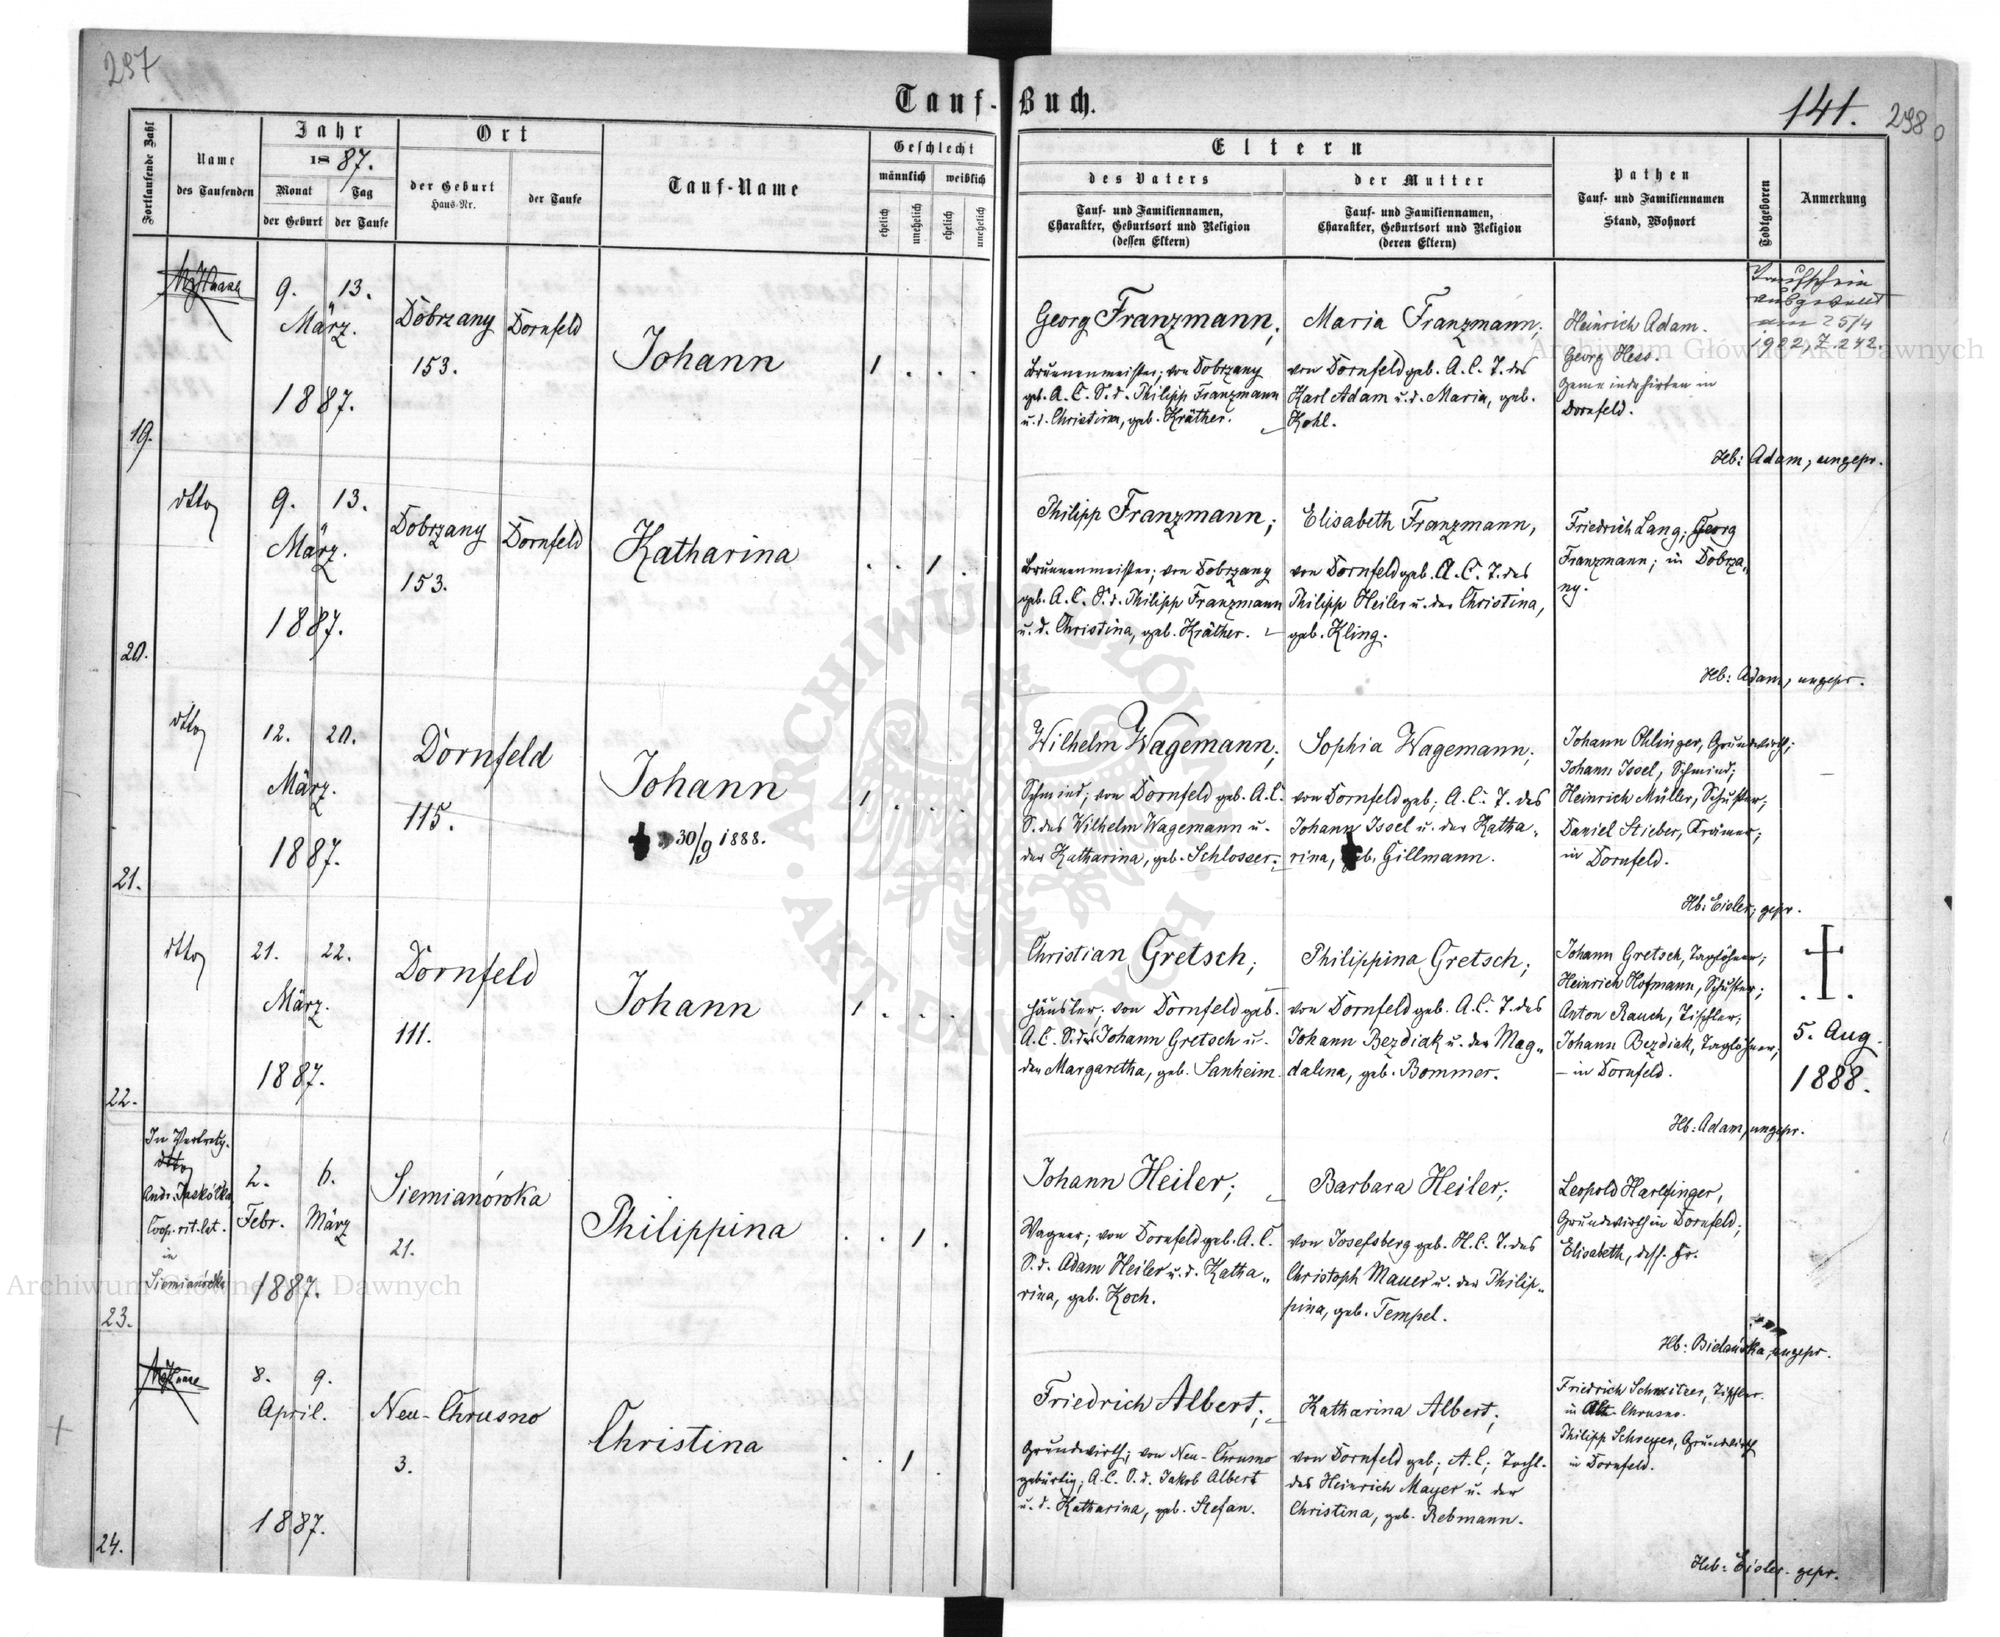 297
Tauf-Buch.
141.
298
Fortlaufende Zahl
Name
des Taufenden
Jahr
1887.
Monat
Tag
der Geburt
der Taufe
Ort
der Geburt
Haus-Nr.
der Taufe
Tauf-Name
Geschlecht
männlich
weiblich
ehelich
unehelich
ehelich
unehelich
Eltern
des Vaters
Tauf- und Familiennamen,
Charakter, Geburtsort und Religion
(dessen Eltern)
der Mutter
Tauf- und Familiennamen,
Charakter, Geburtsort und Religion
(deren Eltern)
Pathen
Tauf- und Familiennamen
Stand, Wohnort
Todtgeboren
Anmerkung
19.
9. 13.
März.
1887.
Dobrzany
153.
Dornfeld
Johann
1 . . .
Georg Franzmann,
Brunnenmeister; von Dobrzany
geb. A. C. S. d. Philipp Franzmann
u. d. Christina, geb. Kräther.
Maria Franzmann;
von Dornfeld geb. A. C. T. des
Karl Adam u. d. Maria, geb.
Kohl.
Heinrich Adam.
Georg Hess.
Gemeindehirten in
Dornfeld.
Taufschein
ausgestellt
am 25/4
1922, Z. 242.
Hb: Adam, ungepr.
20.
dtto
9. 13.
März.
1887.
Dobrzany
153.
Dornfeld
Katharina
. . 1 .
Philipp Franzmann;
Brunnenmeister; von Dobrzany
geb. A. C. S. d. Philipp Franzmann
u. d. Christina, geb. Kräther.
Elisabeth Franzmann,
von Dornfeld geb. A. C. T. des
Philipp Heiler u. der Christina,
geb. Kling.
Friedrich Lang; Georg
Franzmann; in Dobrza„
ny.
Hb: Adam, ungepr.
21.
dtto
12. 20.
März.
1887.
Dornfeld
115.
Johann
30/9 1888.
1 . . .
Wilhelm Wagemann;
Schmied; von Dornfeld geb. A. C.
S. des Wilhelm Wagemann u.
der Katharina, geb. Schlosser.
Sophia Wagemann;
von Dornfeld geb; A. C. T. des
Johann Issel u. der Katha„
rina, geb. Gillmann.
Johann Ohlinger, Grundwirth;
Johann Issel, Schmied;
Heinrich Müller, Schuster;
Daniel Stieber, Krämer;
in Dornfeld.
Hb: Eisler; gepr.
22.
dtto
21. 22.
März.
1887.
Dornfeld
111.
Johann
1 . . .
Christian Gretsch;
Häusler; von Dornfeld geb.
A. C. S. des Johann Gretsch u.
der Margaretha, geb. Sanheim.
Philippina Gretsch;
von Dornfeld geb. A. C. T. des
Johann Bezdiak u. der Mag„
dalena, geb. Bommer.
Johann Gretsch, Taglöhner;
Heinrich Hofmann, Schuster;
Anton Rauch, Tischler;
Johann Bezdiak, Taglöhner;
– in Dornfeld.
5. Aug.
1888.
Hb: Adam, ungepr.
23.
In Vertretg.
dtto
Andr. Jaskółka
Coop. rit. lat.
in
Siemianówka
2. 6.
Febr. März
1887.
Siemianówka
21.
Philippina
. . 1 .
Johann Heiler;
Wagner; von Dornfeld geb. A. C.
S. d. Adam Heiler u. d. Katha„
rina, geb. Koch.
Barbara Heiler;
von Josefsberg geb. H. C. T. des
Christoph Mauer u. der Philip„
pina, geb. Tempel.
Leopold Harlfinger,
Grundwirth in Dornfeld;
Elisabeth, dess. Fr.
Hb: Bielańska, ungepr.
24.
8. 9.
April.
1887.
Neu-Chrusno
3.
Christina
. . 1 .
Friedrich Albert;
Grundwirth; von Neu-Chrusno
gebürtig; A. C. S. d. Jakob Albert
u. d. Katharina, geb. Stefan.
Katharina Albert;
von Dornfeld geb; A. C; Tocht.
des Heinrich Mayer u. der
Christina, geb. Rebmann.
Friedrich Schweitzer, Tischler
in Alt-Chrusno.
Philipp Schreyer, Grundwirth
in Dornfeld.
Heb: Eisler. gepr.
Archiwum Główne Akt Dawnych
Archiwum Główne Akt Dawnych
ARCHIWUM GŁÓWNE AKT DAWNYCH